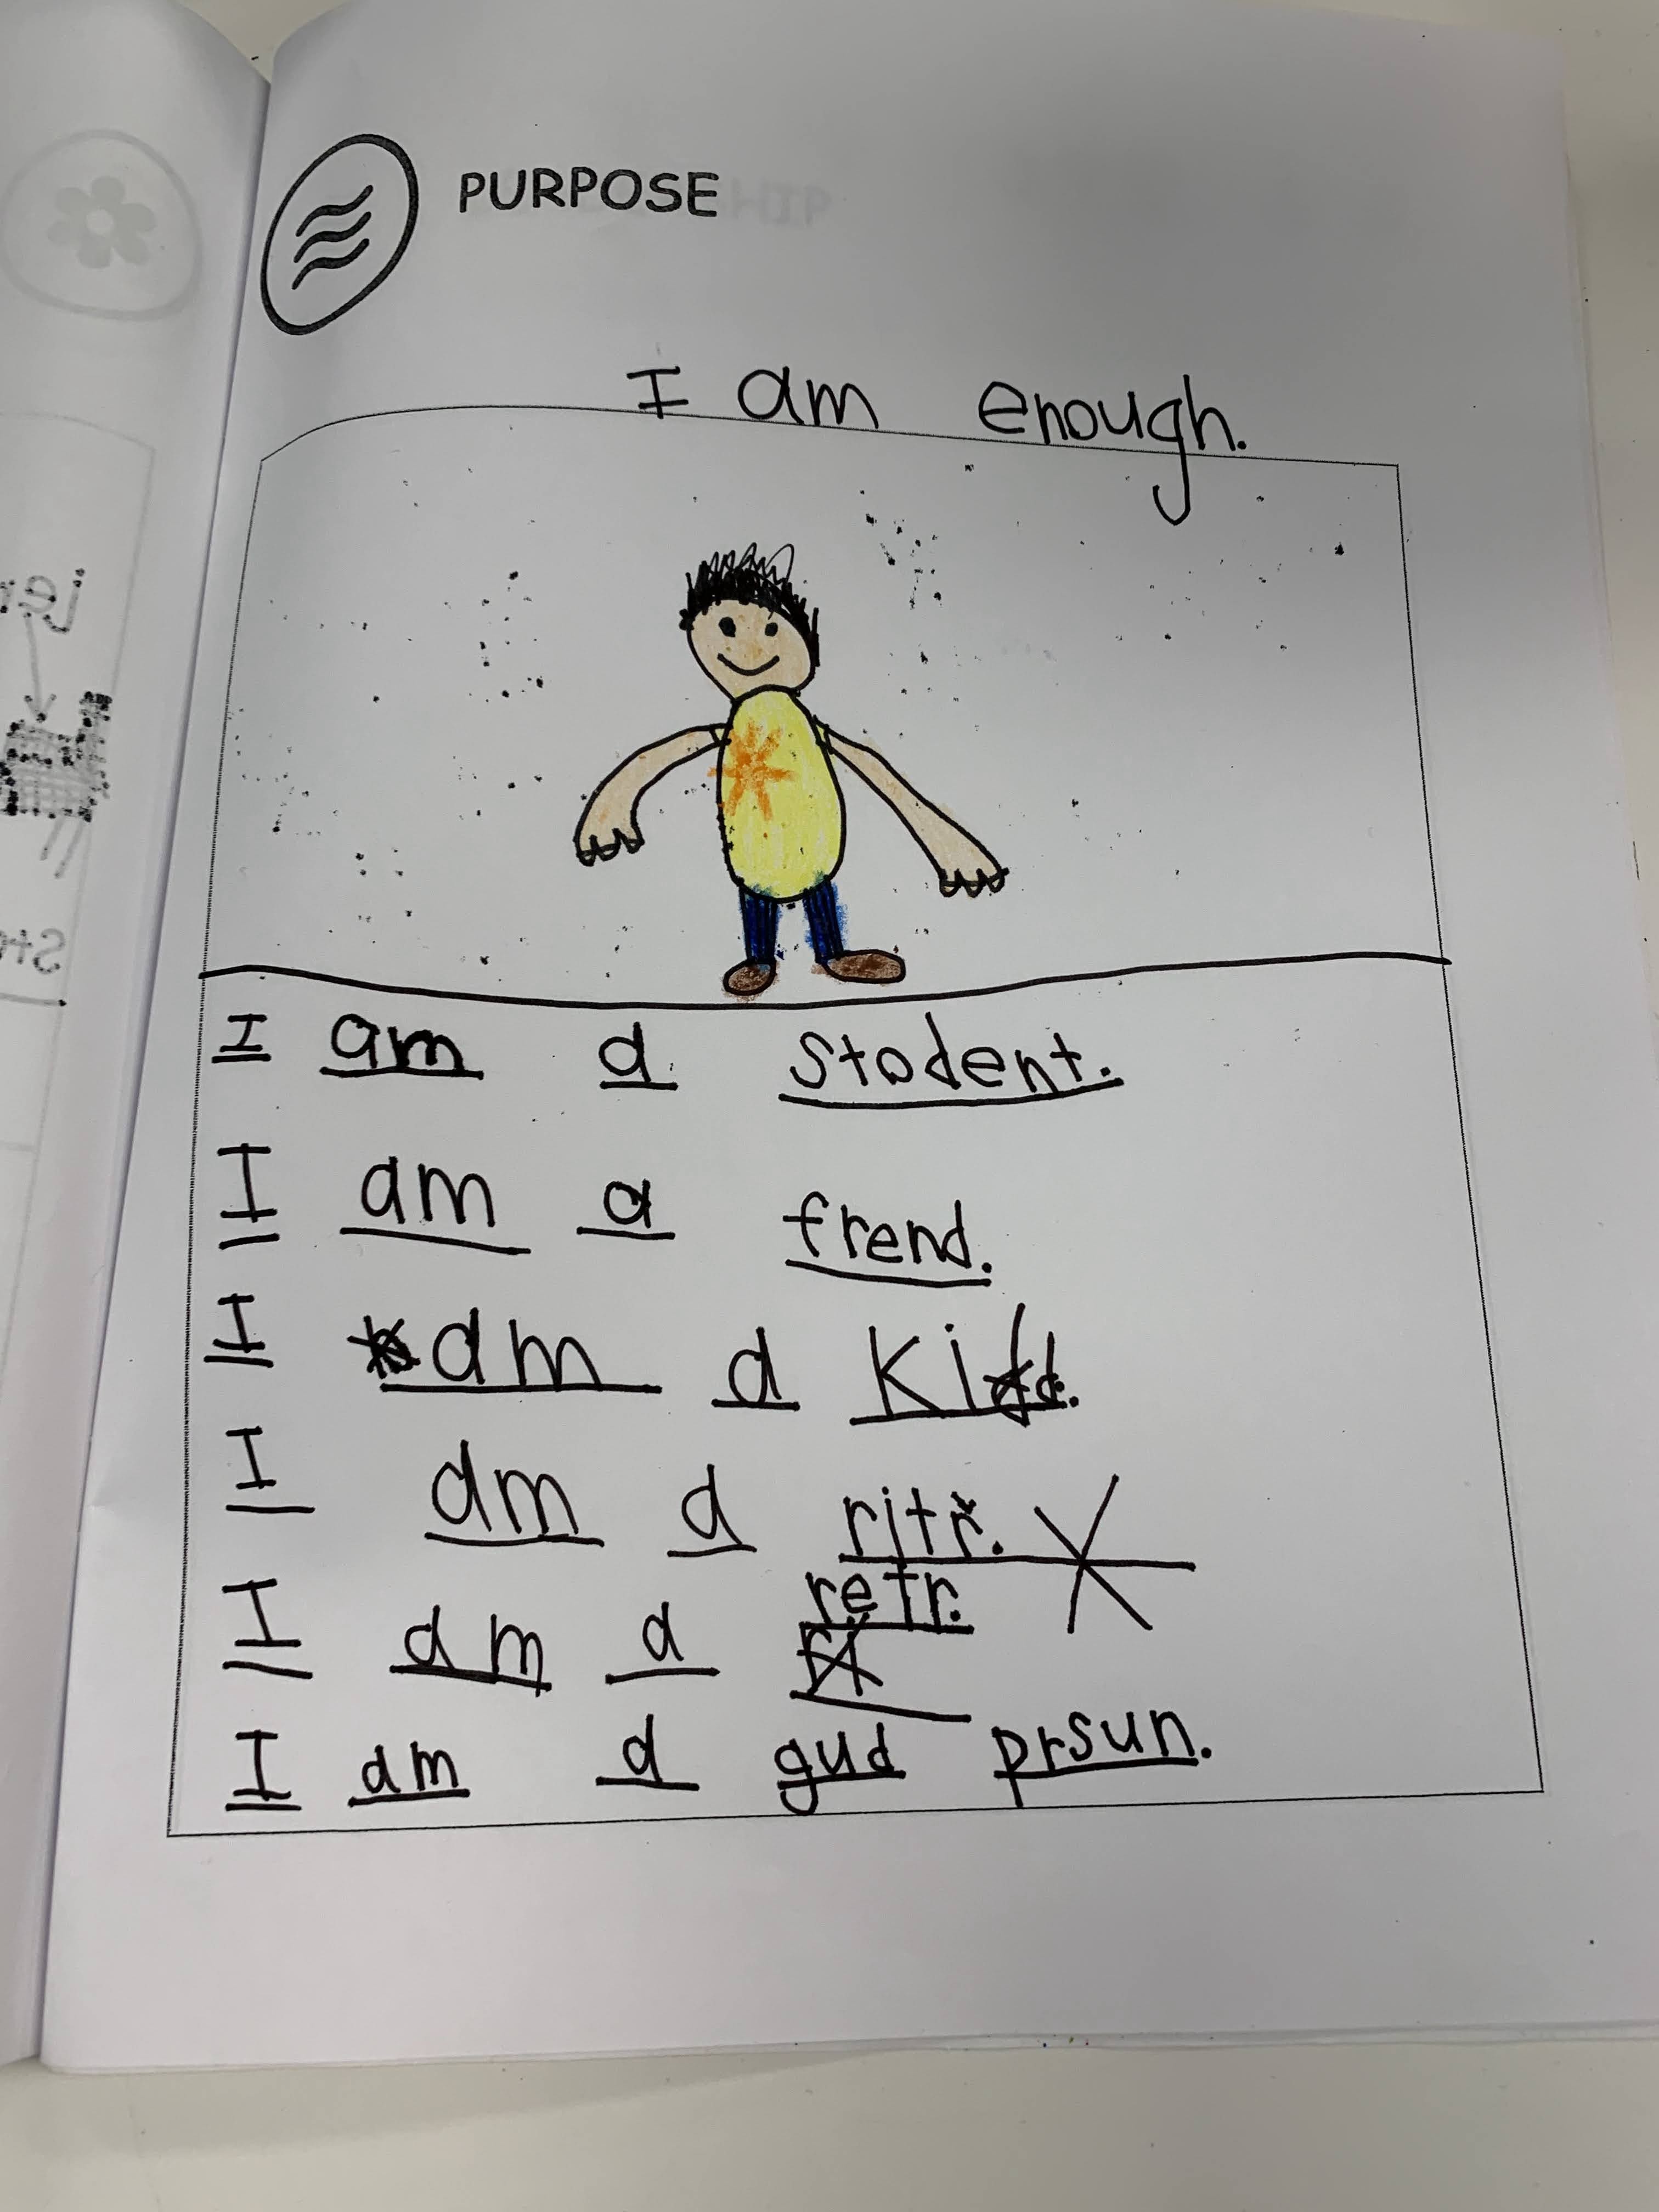 PURPOSE
I am enough.
I am a stodent.
I am a frend.
I am a Kid.
I am a ritr.
I am a retr.
I am a gud prsun.